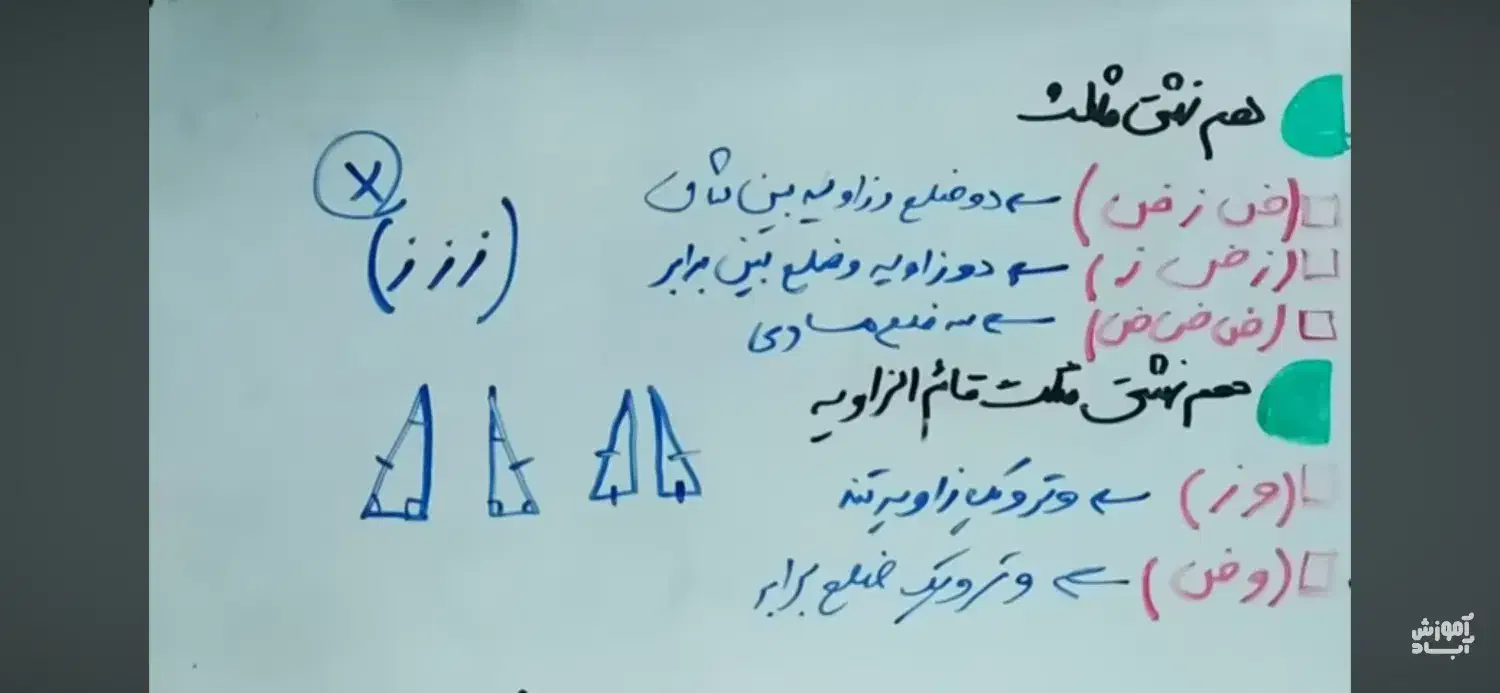 هم نهشتی مثلث
(ض ز ض) ← دو ضلع و زاویه بین شان
(ز ض ز) ← دو زاویه و ضلع بین برابر
(ض ض ض) ← سه ضلع مساوی
(ز ز ز)
X
هم نهشتی مثلث قائم الزاویه
(و ز) ← وتر و یک زاویه تند
(و ض) ← وتر و یک ضلع برابر
آموزش
آباد